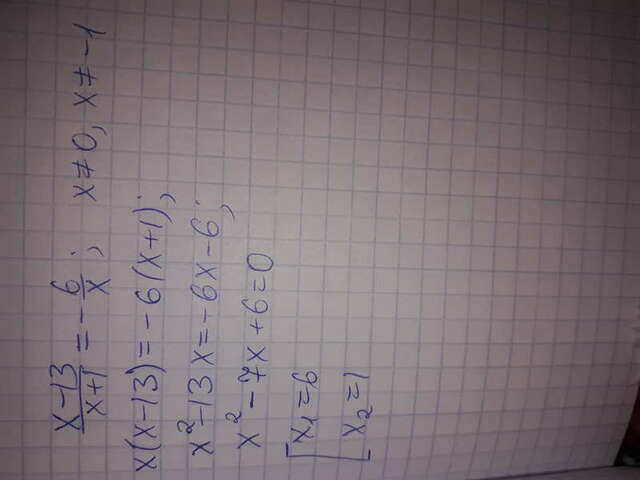 (x-13)/(x+1) = -6/x; x≠0, x≠-1
x(x-13)=-6(x+1);
x²-13x=-6x-6;
x²-7x+6=0
[x₁=6
x₂=1